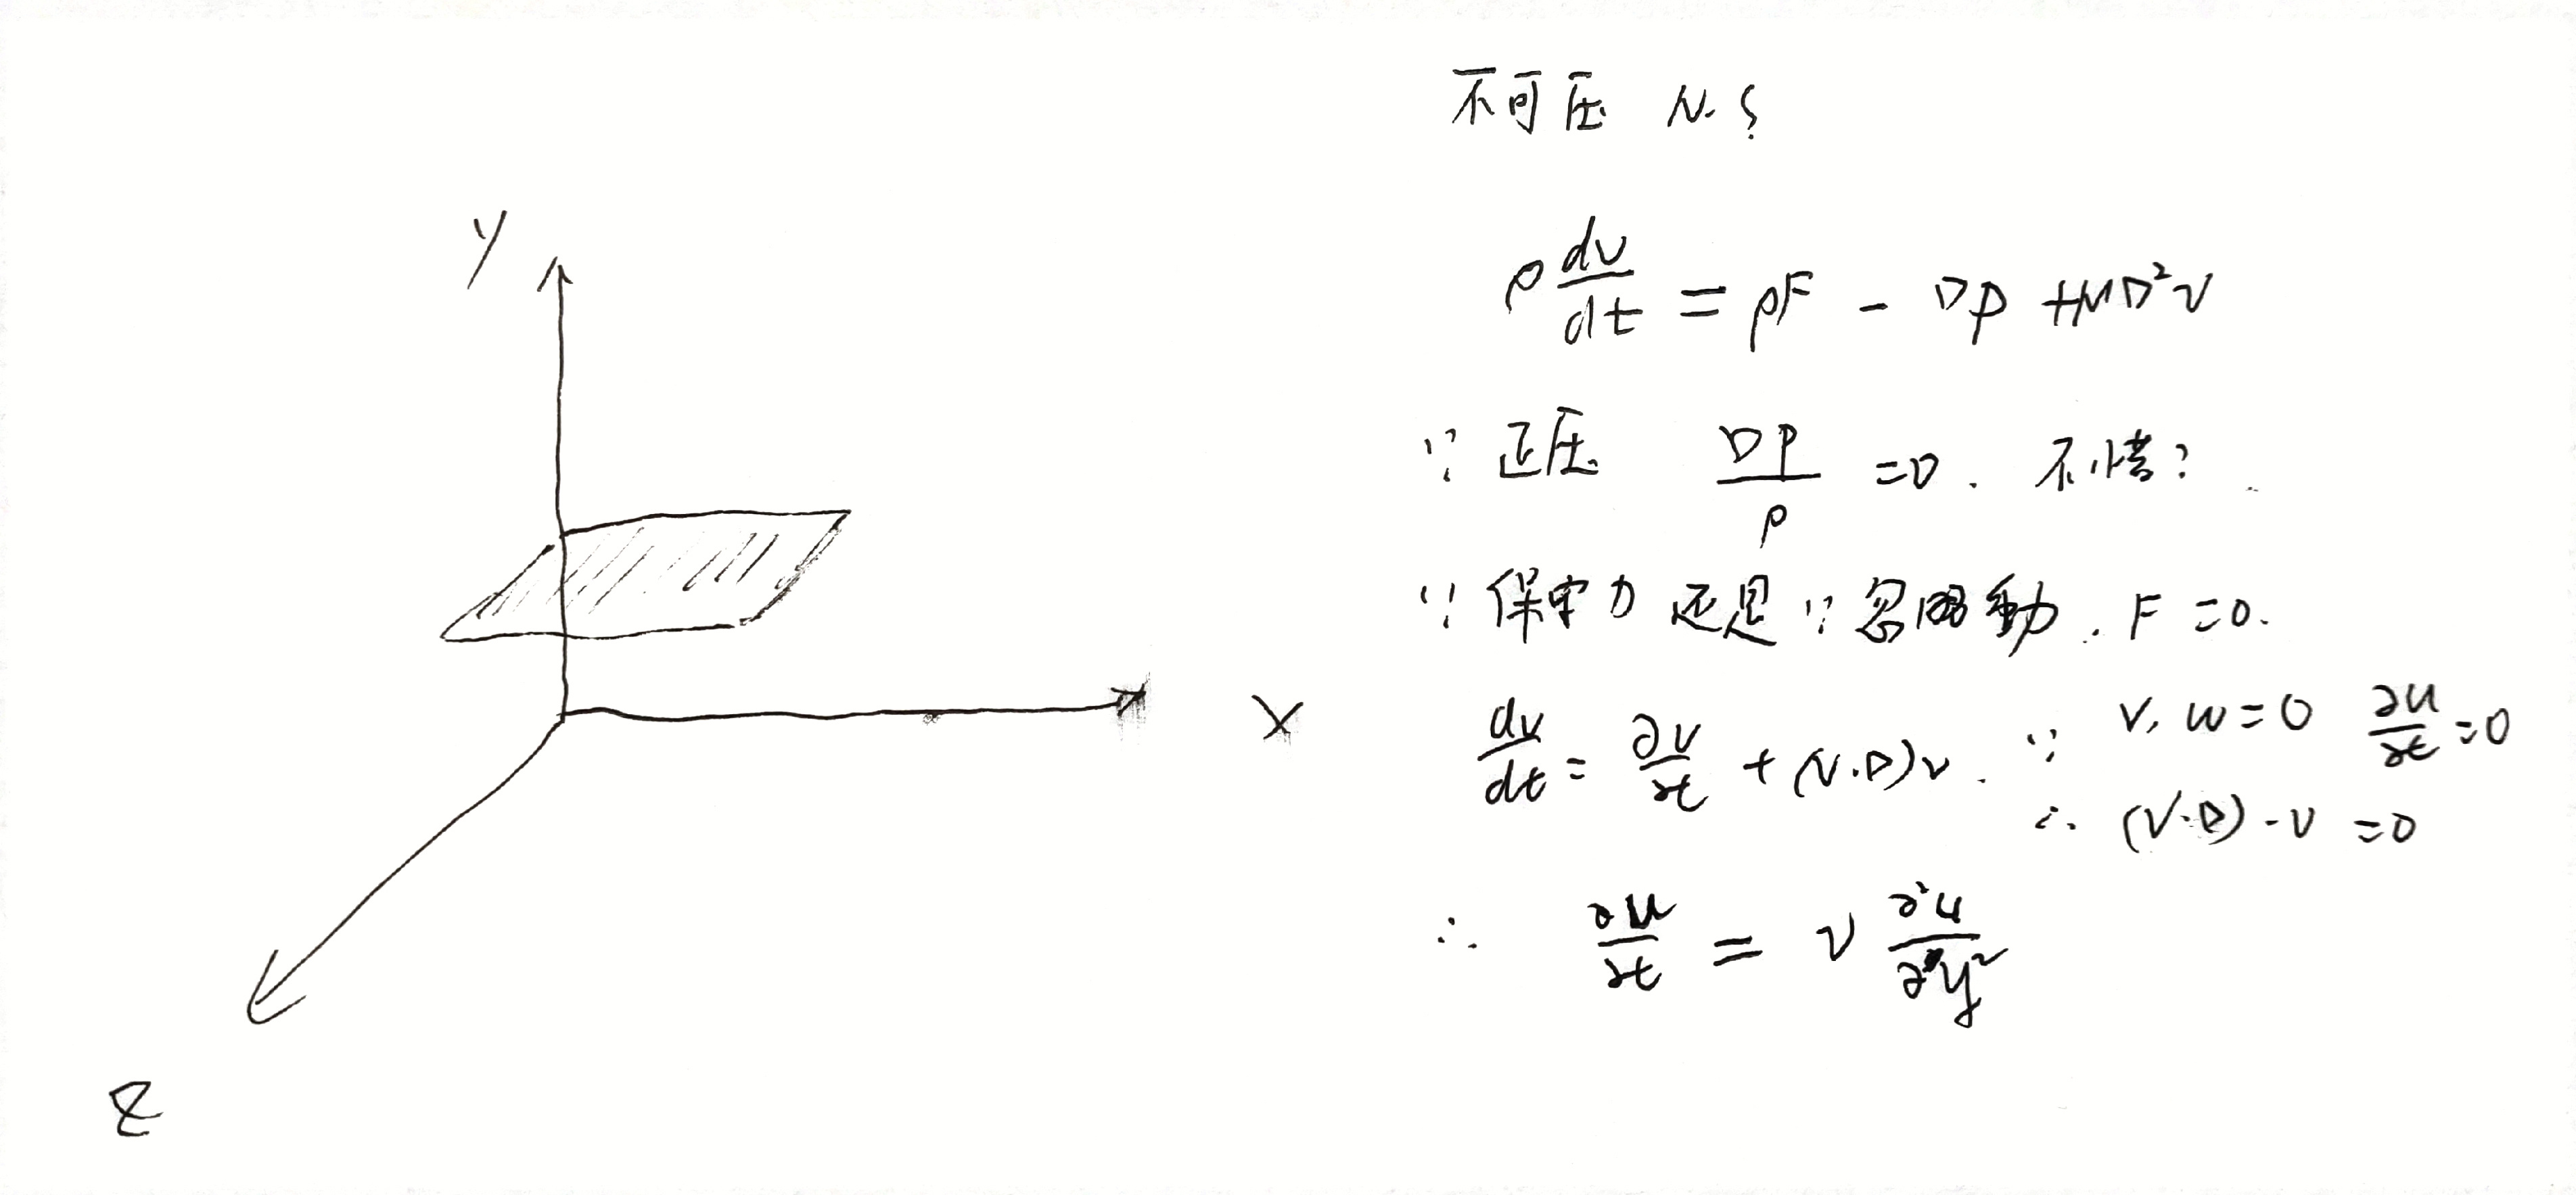 不可压 N.S
y
ρ dv/dt = ρF - ∇p + μ∇²v
∵ 正压 ∇p/ρ =0. 不懂?
∵ 保守力 还是 ∵ 忽略 . F =0.
x
dv/dt = ∂v/∂t + (v.∇)v . ∵ v, w = 0 ∂u/∂t =0
∴ (v·∇)·v =0
∴ ∂u/∂t = ν ∂²u/∂y²
z